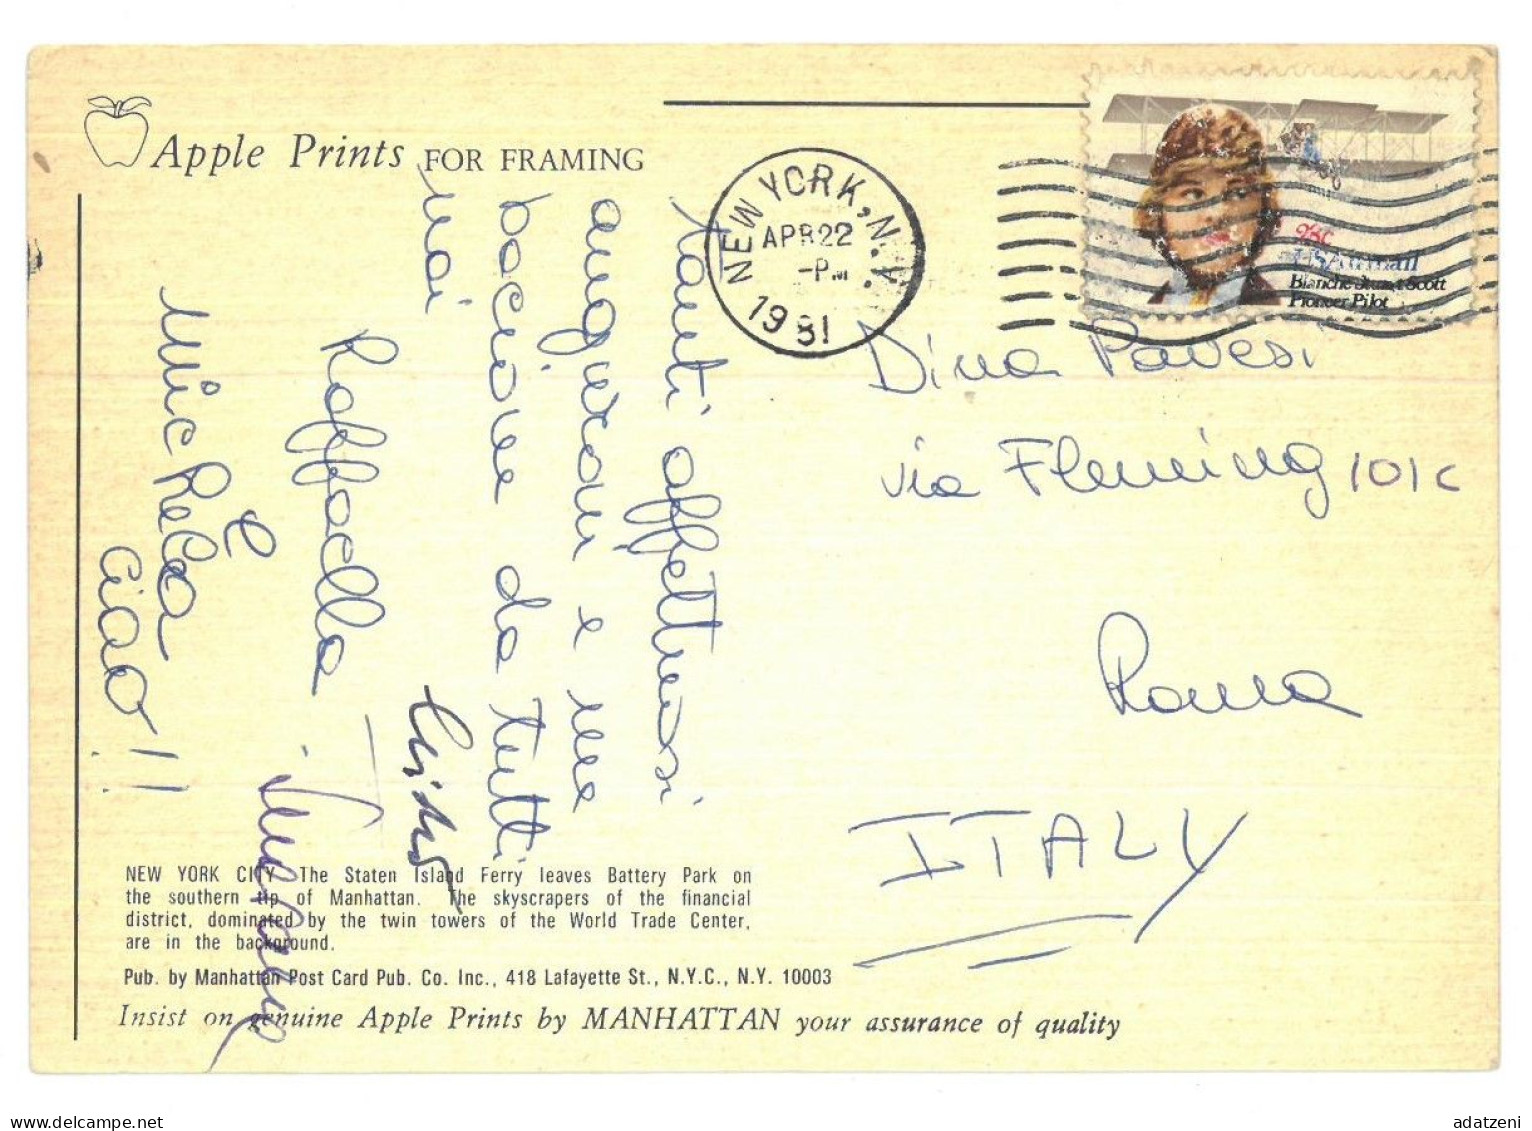 Apple Prints FOR FRAMING
NEW YORK, N.Y.
APR 22
-PM
1981
28c
USAirmail
Blanche Stuart Scott
Pioneer Pilot
Tanti affettuosi
auguroni e un
bacione da tutti
noi
Raffaella
Michela
e
Ciao!!
Dina Pavesi
via Fleming 101c
Roma
ITALY
NEW YORK CITY The Staten Island Ferry leaves Battery Park on
the southern tip of Manhattan. The skyscrapers of the financial
district, dominated by the twin towers of the World Trade Center,
are in the background.
Pub. by Manhattan Post Card Pub. Co. Inc., 418 Lafayette St., N.Y.C., N.Y. 10003
Insist on genuine Apple Prints by MANHATTAN your assurance of quality
adatzeni